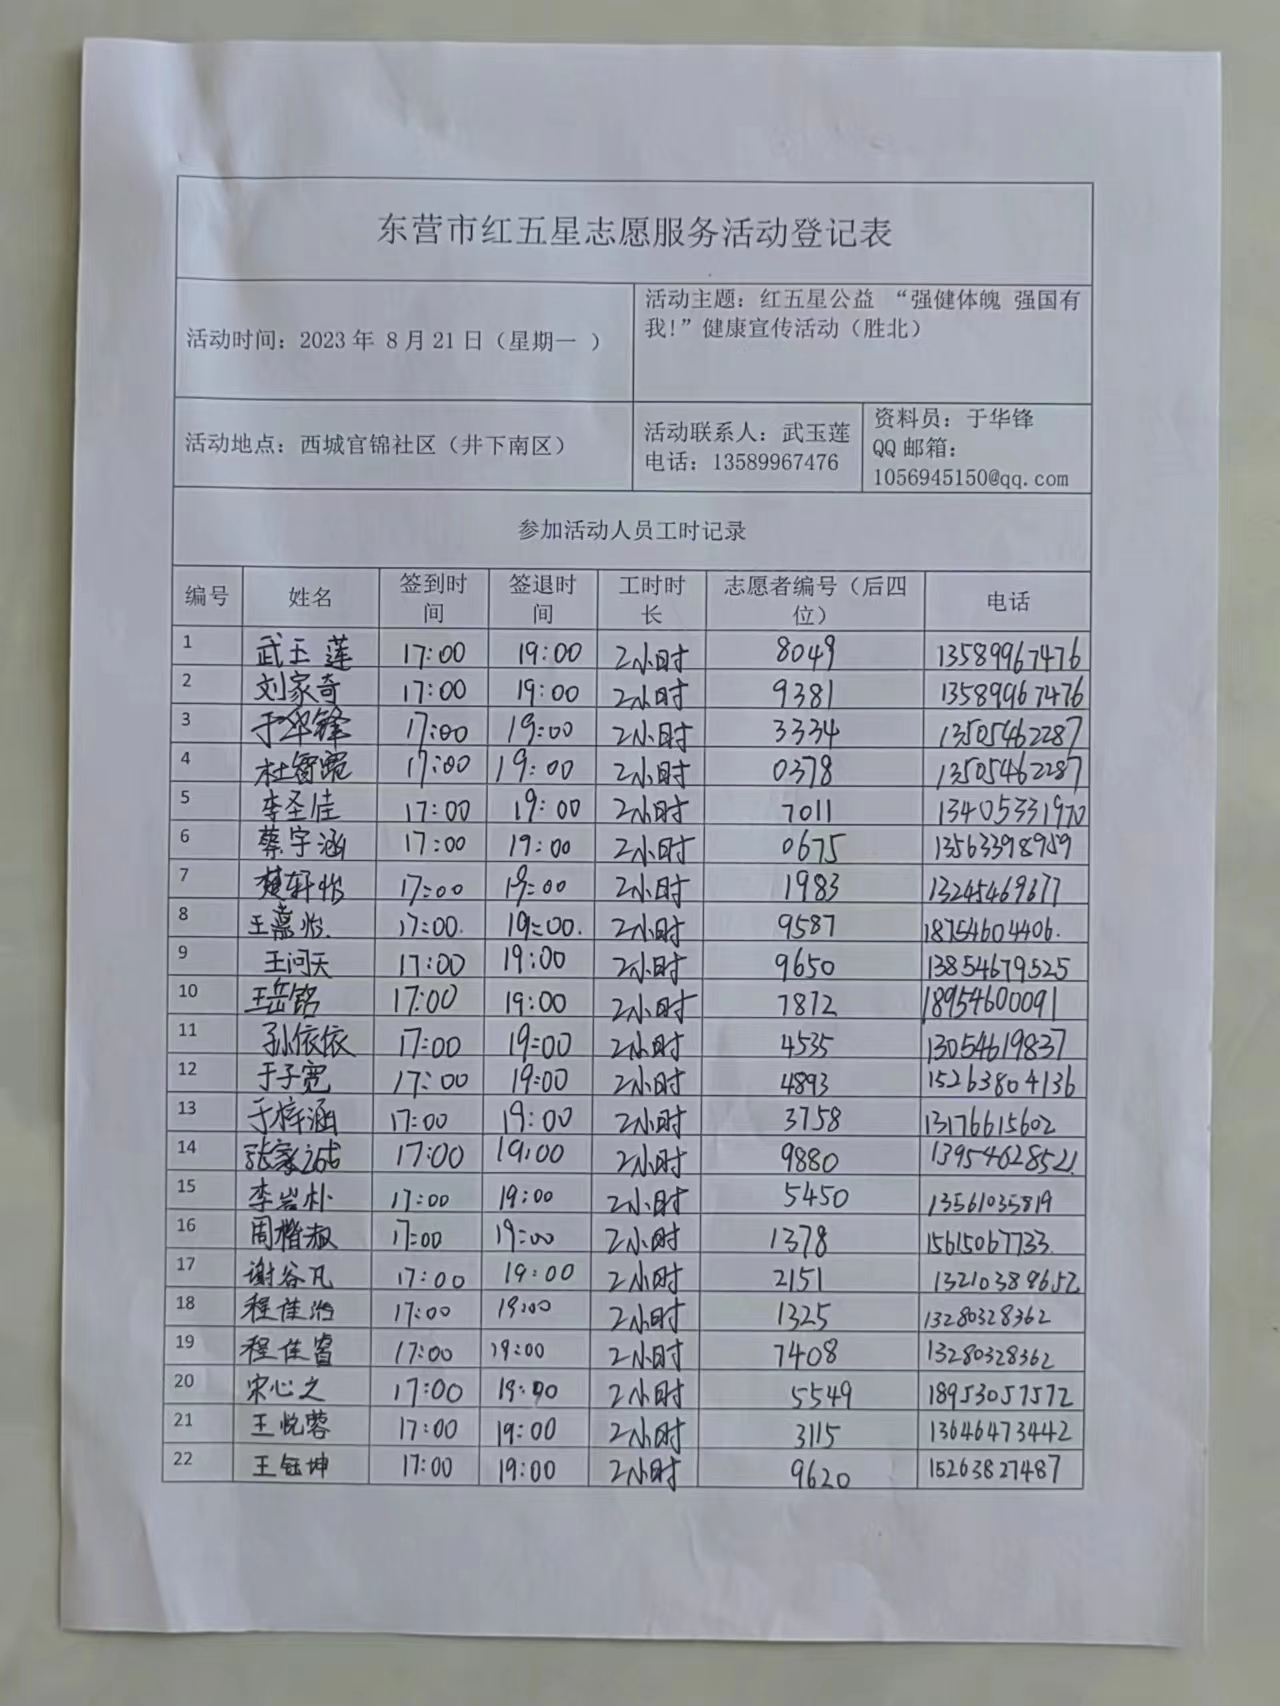 东营市红五星志愿服务活动登记表
活动时间：2023 年 8 月 21 日（星期一 ）
活动主题：红五星公益 “强健体魄 强国有
我！”健康宣传活动（胜北）
活动地点：西城官锦社区（井下南区）
活动联系人：武玉莲
电话：13589967476
资料员：于华锋
QQ 邮箱：
1056945150@qq.com
参加活动人员工时记录
编号 姓名 签到时间 签退时间 工时时长 志愿者编号（后四位） 电话
1 武玉莲 17:00 19:00 2小时 8049 13589967476
2 刘家奇 17:00 19:00 2小时 9381 13589967476
3 于华锋 17:00 19:00 2小时 3334 13505462287
4 17:00 19:00 2小时 0378 13505462287
5 李圣佳 17:00 19:00 2小时 7011 13405331970
6 蔡宇涵 17:00 19:00 2小时 0675 13563398959
7 楚轩怡 17:00 19:00 2小时 1983 13245469677
8 王嘉怡 17:00 19:00 2小时 9587 18754604406
9 王问天 17:00 19:00 2小时 9650 13854679525
10 王岳铭 17:00 19:00 2小时 7872 18954600091
11 孙依依 17:00 19:00 2小时 4535 13054619837
12 于子宽 17:00 19:00 2小时 4893 15263804136
13 于梓涵 17:00 19:00 2小时 3758 13176615602
14 17:00 19:00 2小时 9880 13954628521
15 李岩朴 17:00 19:00 2小时 5450 13561035819
16 17:00 19:00 2小时 1378 15615067733
17 谢谷凡 17:00 19:00 2小时 2151 13210389652
18 17:00 19:00 2小时 1325 13280328362
19 程佳睿 17:00 19:00 2小时 7408 13280328362
20 宋心之 17:00 19:00 2小时 5549 18953057572
21 王悦蓉 17:00 19:00 2小时 3115 13646473442
22 王钰坤 17:00 19:00 2小时 9620 15263827487